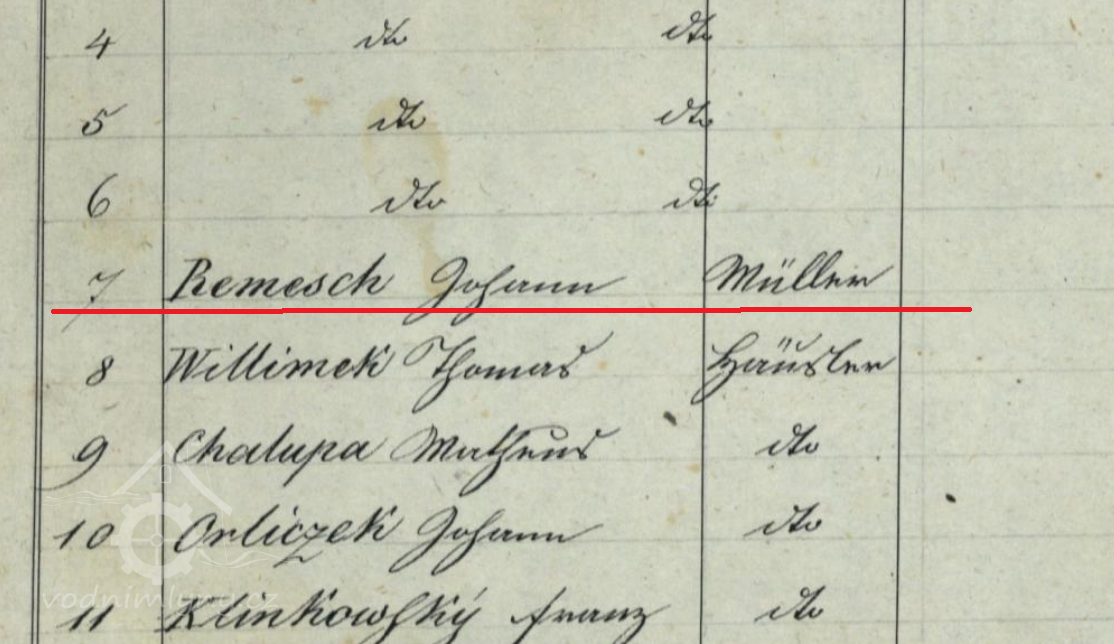 4 dto dto
5 dto dto
6 dto dto
7 Remesch Johann Müller
8 Willimek Thomas Häusler
9 Chalupa Matheus dto
10 Orliczek Johann dto
11 Klinkowský Franz dto
vodnimlyny.cz